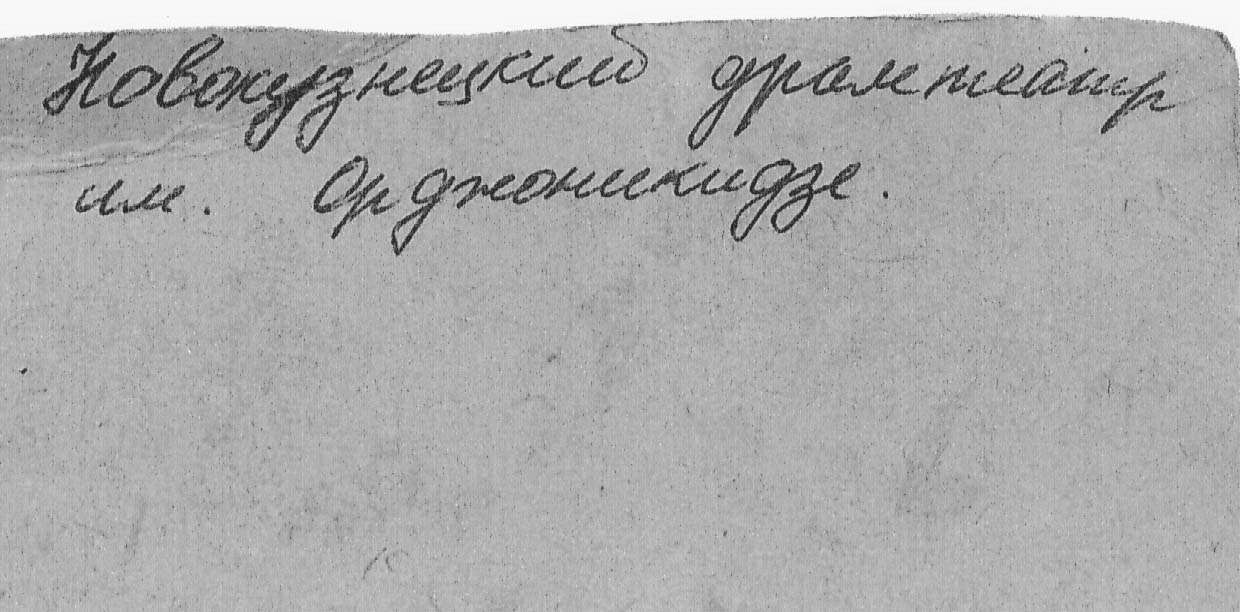 Новокузнецкий драмтеатр
им. Орджоникидзе.